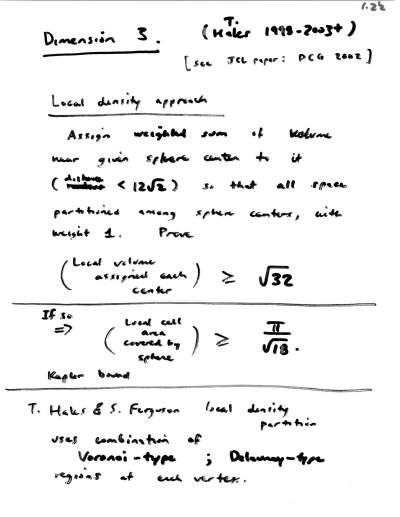 1.2½
Dimension 3. (T. Hales 1998-2003+)
[see JCL paper: DCG 2002]
Local density approach
Assign weighted sum of volume
near given sphere center to it
(distance < 12√2) so that all space
partitioned among sphere centers, with
weight 1. Prove
(Local volume assigned each center) ≥ √32
If so
⇒ (Local cell area covered by sphere) ≥ π/√18.
Kepler bound
T. Hales & S. Ferguson local density
partition
uses combination of
Voronoi-type ; Delaunay-type
regions at each vertex.